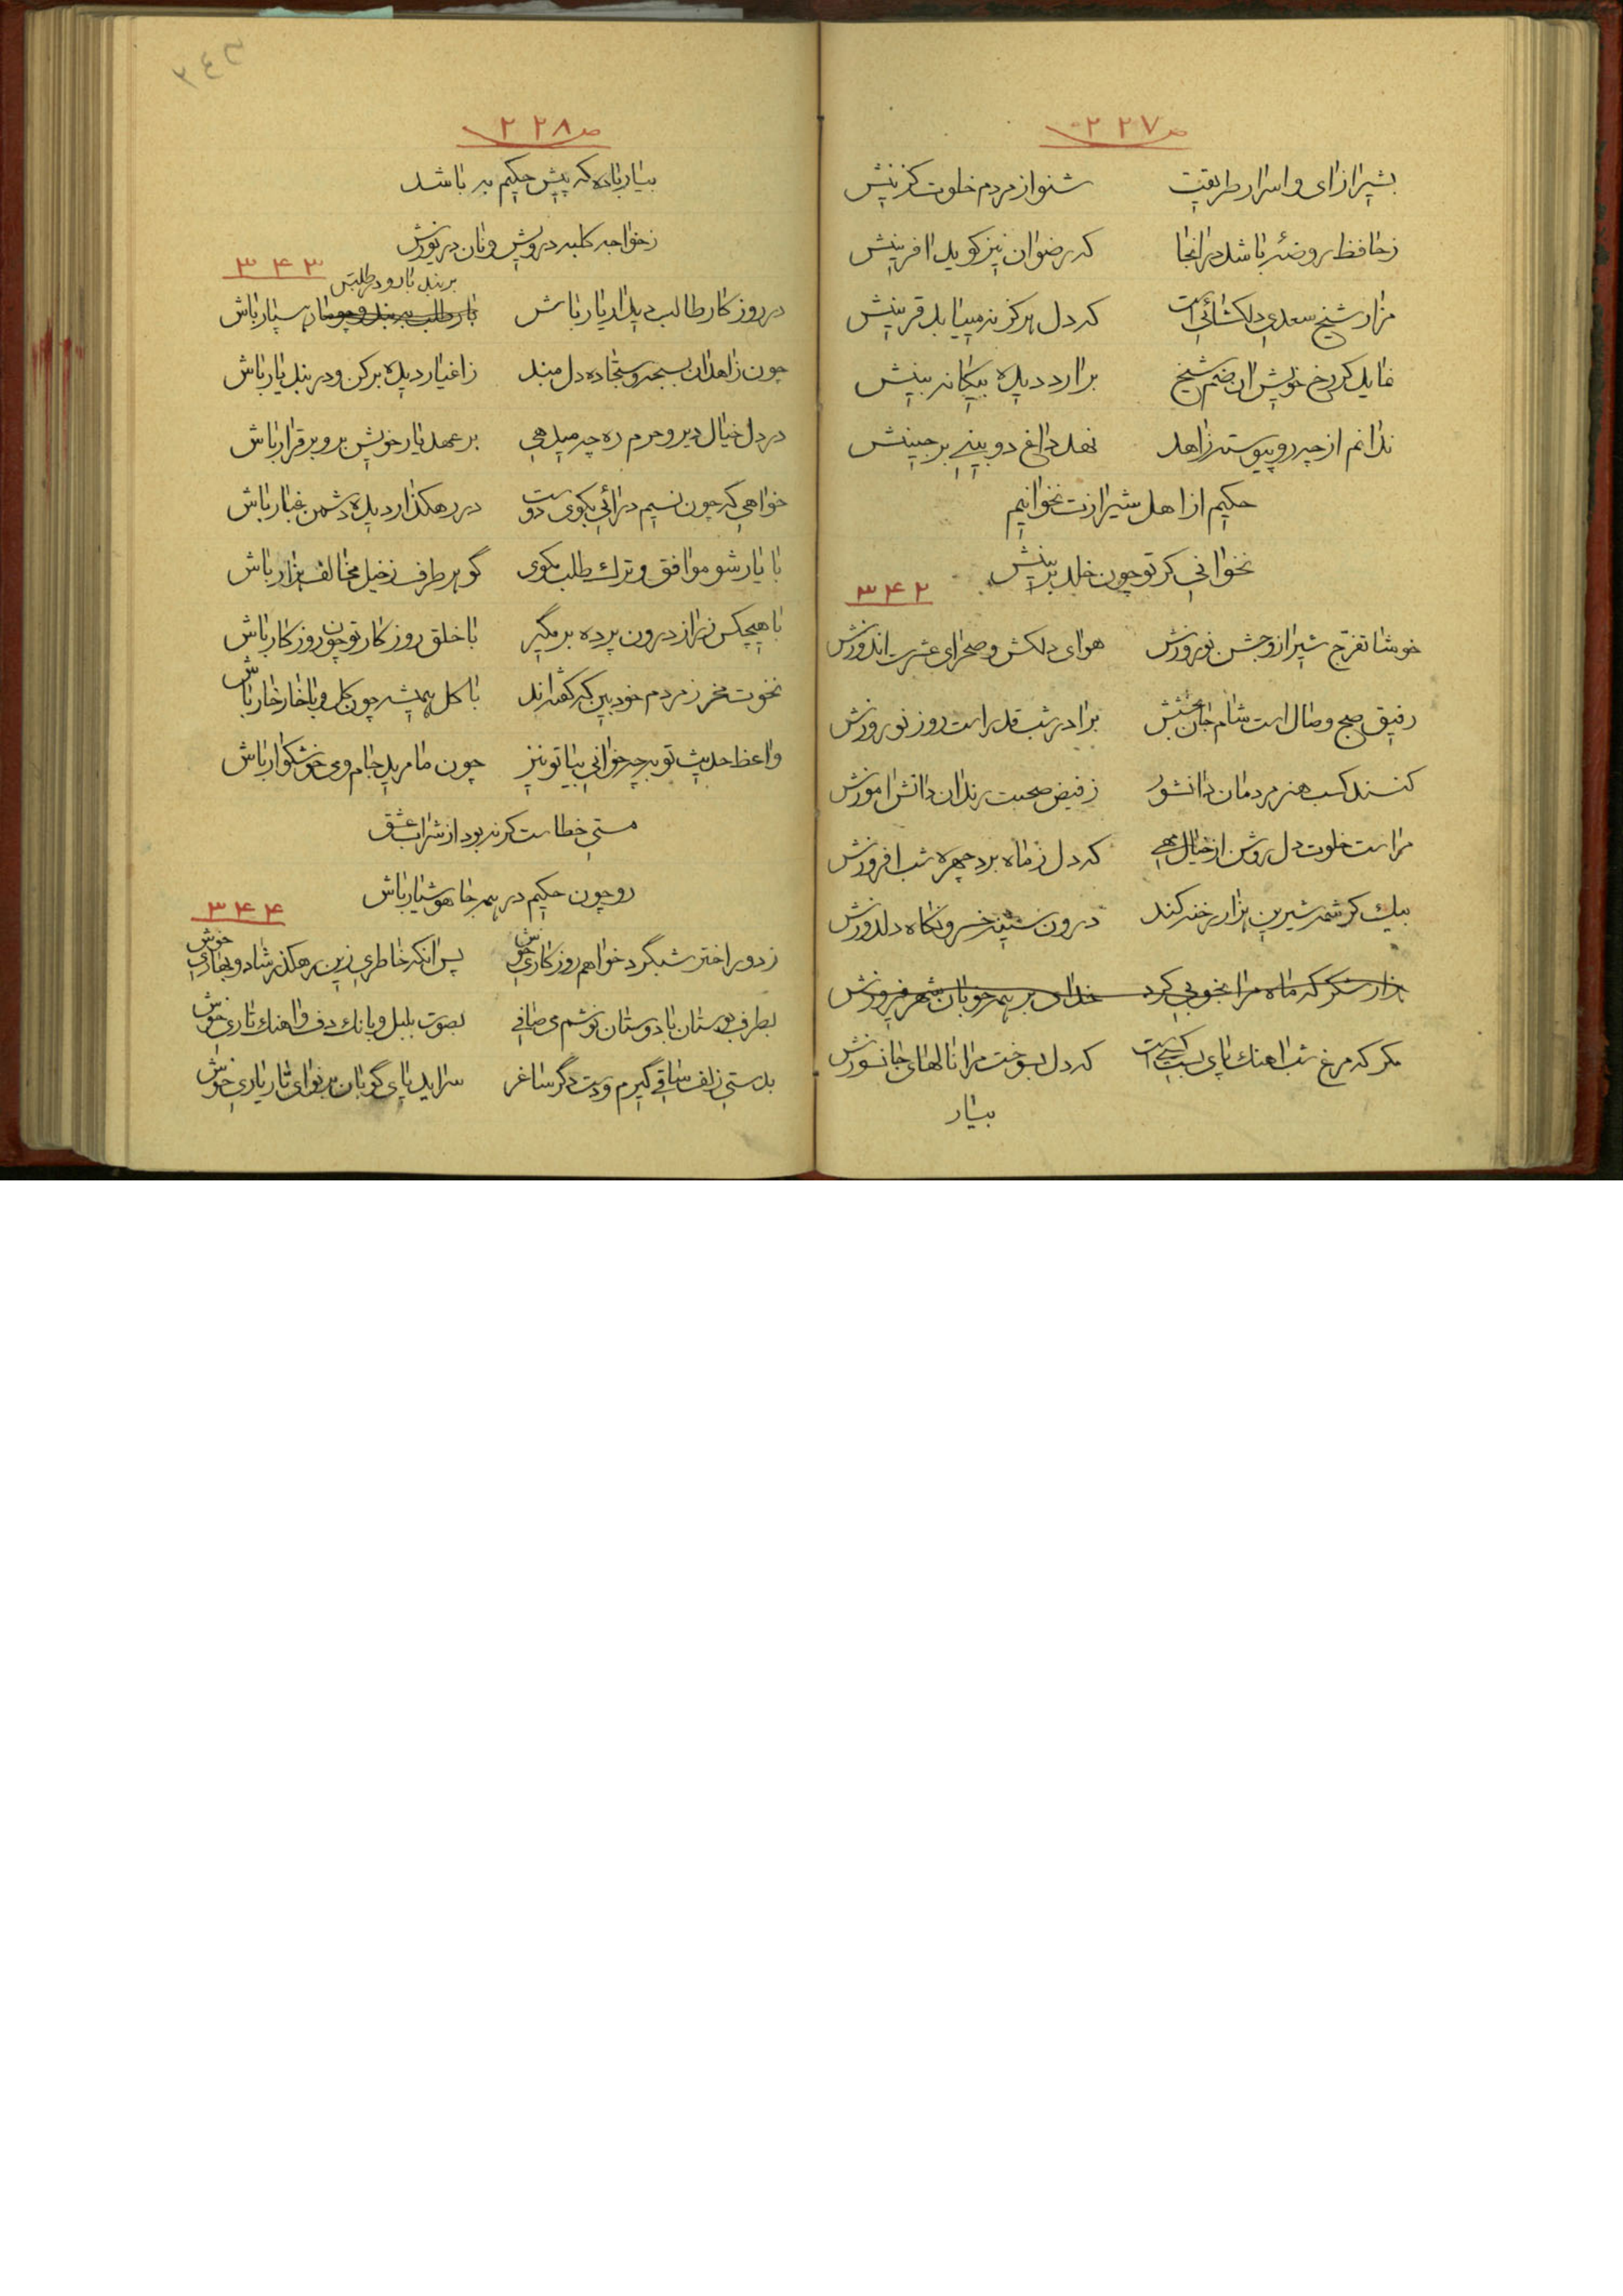 ص ۲۲۷
بشیراز ای و اسرار طریقت شنو از مردم خلوت گزینش
ز حافظ روضهٔ باشد در آنجا که رضوان نیز گوید آفرینش
مزار شیخ سعدی دلکشائی است که دل هرگز نمییابد قرینش
نماید گر رخ خویش ان صنم شیخ برارد دیده بیگانه بینش
ندانم از چه رو پیوسته زاهد نهد داغ دو بینی بر جبینش
حکیم از اهل شیرازت نخوانیم
نخوانی گر تو چون خلد برینش
۳۴۲
خوشا تفرج شیراز و جشن نوروزش هوای دلکش و صحرای عشرت اندوزش
رفیق صبح وصال است شام جان بخشش برادر شب قدر است روز نوروزش
کنند کسب هنر مردمان دانشور ز فیض صحبت رندان دانش اموزش
مراست خلوت دل روشن از خیال مهی که دل ز ماه برد چهره شب افروزش
بیک کرشمه شیرین هزار رخنه کند درون سینه خسرو نگاه دلدوزش
هزار شکر که ماه مرا بخوبی کرد خدای بر همه خوبان شهر فیروزش
مگر که مرغ شب اهنگ پای بست کسی است که دل بسوخت مرا نالهای جانسوزش
بیار
ص ۲۲۸
بیار باده که پیش حکیم به باشد
ز خواجه کلبه درویش و نان دریوزش
۳۴۳
بر بند بار و در طلبش
در روزگار طالب دیدار یار باش بار طلب ببند و رهسپار باش
چون زاهدان بسبحه و سجاده دل مبند ز اغیار دیده برکن و در بند یار باش
در دل خیال دیر و حرم ره چه میدهی بر عهد یار خویش برو برقرار باش
خواهی که چون نسیم درائی بکوی دوست در رهگذار دیده دشمن غبار باش
با یار شو موافق و ترک طلب مگوی گو هر طرف ز خیل مخالف هزار باش
با هیچکس ز راز درون پرده بر مگیر با خلق روزگار تو چون روزگار باش
نخوت مخر ز مردم خودبین که گفته‌اند با گل همیشه چون گل و با خار خار باش
واعظ حدیث توبه چه خوانی بیا تو نیز چون ما مرید جام می خوشگوار باش
مستی خطاست گر نه بود از شراب عشق
رو چون حکیم در همه جا هوشیار باش
۳۴۴
ز دور اختر شبگرد خواهم روزگاری خوش پس آنکه خاطری زین رهگذر شاد و بهاری خوش
بطرف بوستان با دوستان نوشم می صافی بصوت بلبل و بانک دف و اهنک تاری خوش
بدستی زلف ساقی گیرم و دست دگر ساغر سراید پای گوبان بر نوای تار یاری خوش